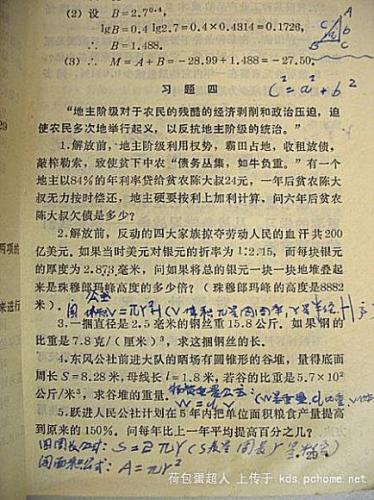 (2) 设 B=2.7⁰·⁴,
lgB=0.4 lg2.7=0.4×0.4314=0.1726,
∴ B=1.488.
(3) ∴ M=A+B=-28.99+1.488=-27.50.
A
C
B C
C²=a²+b²
习 题 四
“地主阶级对于农民的残酷的经济剥削和政治压迫，迫
使农民多次地举行起义，以反抗地主阶级的统治。”
1.解放前，地主阶级利用权势，霸田占地，收租放债，
敲榨勒索，致使贫下中农“债务丛集，如牛负重。”有一个
地主以84%的年利率贷给贫农陈大叔24元，一年后贫农陈大
叔无力按时偿还，地主硬要按利上加利计算，问六年后贫农
陈大叔欠债是多少？
2.解放前，反动的四大家族掠夺劳动人民的血汗共200
亿美元。如果当时美元对银元的折率为1:2.15，而每块银元
的厚度为2.873毫米，问如果将总的银元一块一块地堆叠起
来是珠穆郎玛峰高度的多少倍？（珠穆郎玛峰的高度是8882
米）.
公式
V=πr²H
3.一捆直径是2.5毫米的钢丝重15.8公斤，如果钢的
比重是7.8克/(厘米)³，求这捆钢丝的长.
4.东风公社前进大队的晒场有圆锥形的谷堆，量得底面
周长S=8.28米，母线长l=1.8米，若谷的比重是5.7×10²
公斤/米³，求谷堆的重量.
5.跃进人民公社计划在5年内把单位面积粮食产量提高
到原来的150%，问每年比上一年平均提高百分之几？
圆周长公式: S=2πr
圆面积公式: A=πr²
荷包蛋超人 上传于 kds.pchome.net